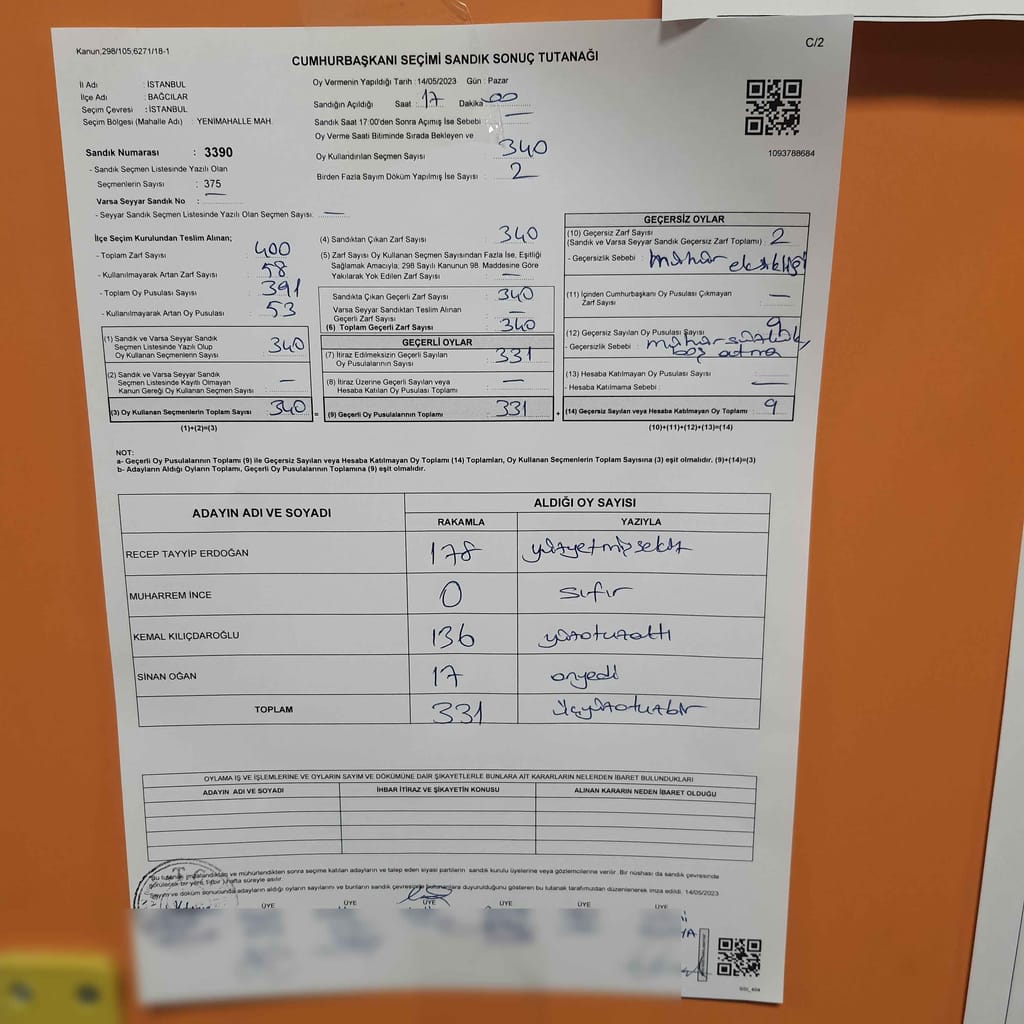 Kanun,298/105,6271/18-1
C/2
CUMHURBAŞKANI SEÇİMİ SANDIK SONUÇ TUTANAĞI
İl Adı : İSTANBUL
İlçe Adı : BAĞCILAR
Seçim Çevresi : İSTANBUL
Seçim Bölgesi (Mahalle Adı) : YENİMAHALLE MAH.
Oy Vermenin Yapıldığı Tarih : 14/05/2023 Gün : Pazar
Sandığın Açıldığı Saat : 17 Dakika 00
Sandık Saat 17:00'den Sonra Açımış İse Sebebi : —
Oy Verme Saati Bitiminde Sırada Bekleyen ve
Oy Kullandırılan Seçmen Sayısı : 340
Birden Fazla Sayım Döküm Yapılmış İse Sayısı : 2
1093788684
Sandık Numarası : 3390
- Sandık Seçmen Listesinde Yazılı Olan
Seçmenlerin Sayısı : 375
Varsa Seyyar Sandık No : —
- Seyyar Sandık Seçmen Listesinde Yazılı Olan Seçmen Sayısı: —
İlçe Seçim Kurulundan Teslim Alınan;
- Toplam Zarf Sayısı : 400
- Kullanılmayarak Artan Zarf Sayısı : 58
- Toplam Oy Pusulası Sayısı : 391
- Kullanılmayarak Artan Oy Pusulası : 53
(1) Sandık ve Varsa Seyyar Sandık
Seçmen Listesinde Yazılı Olup
Oy Kullanan Seçmenlerin Sayısı : 340
(2) Sandık ve Varsa Seyyar Sandık
Seçmen Listesinde Kayıtlı Olmayan
Kanun Gereği Oy Kullanan Seçmen Sayısı : —
(3) Oy Kullanan Seçmenlerin Toplam Sayısı : 340 =
(1)+(2)=(3)
(4) Sandıktan Çıkan Zarf Sayısı : 340
(5) Zarf Sayısı Oy Kullanan Seçmen Sayısından Fazla İse, Eşitliği
Sağlamak Amacıyla; 298 Sayılı Kanunun 98. Maddesine Göre
Yakılarak Yok Edilen Zarf Sayısı : —
Sandıkta Çıkan Geçerli Zarf Sayısı : 340
Varsa Seyyar Sandıktan Teslim Alınan
Geçerli Zarf Sayısı : —
(6) Toplam Geçerli Zarf Sayısı : 340
GEÇERLİ OYLAR
(7) İtiraz Edilmeksizin Geçerli Sayılan
Oy Pusulalarının Sayısı : 331
(8) İtiraz Üzerine Geçerli Sayılan veya
Hesaba Katılan Oy Pusulası Toplamı : —
(9) Geçerli Oy Pusulalarının Toplamı : 331 +
GEÇERSİZ OYLAR
(10) Geçersiz Zarf Sayısı
(Sandık ve Varsa Seyyar Sandık Geçersiz Zarf Toplamı) : 2
- Geçersizlik Sebebi : mühür eksikliği
(11) İçinden Cumhurbaşkanı Oy Pusulası Çıkmayan
Zarf Sayısı : —
(12) Geçersiz Sayılan Oy Pusulası Sayısı : 9
- Geçersizlik Sebebi : mühürsüzlük,
boş atma
(13) Hesaba Katılmayan Oy Pusulası Sayısı :
- Hesaba Katılmama Sebebi : —
(14) Geçersiz Sayılan veya Hesaba Katılmayan Oy Toplamı : 9
(10)+(11)+(12)+(13)=(14)
NOT:
a- Geçerli Oy Pusulalarının Toplamı (9) ile Geçersiz Sayılan veya Hesaba Katılmayan Oy Toplamı (14) Toplamları, Oy Kullanan Seçmenlerin Toplam Sayısına (3) eşit olmalıdır. (9)+(14)=(3)
b- Adayların Aldığı Oyların Toplamı, Geçerli Oy Pusulalarının Toplamına (9) eşit olmalıdır.
ADAYIN ADI VE SOYADI
ALDIĞI OY SAYISI
RAKAMLA YAZIYLA
RECEP TAYYİP ERDOĞAN 178 yüzyetmişsekiz
MUHARREM İNCE 0 sıfır
KEMAL KILIÇDAROĞLU 136 yüzotuzaltı
SİNAN OĞAN 17 onyedi
TOPLAM 331 üçyüzotuzbir
OYLAMA İŞ VE İŞLEMLERİNE VE OYLARIN SAYIM VE DÖKÜMÜNE DAİR ŞİKAYETLERLE BUNLARA AİT KARARLARIN NELERDEN İBARET BULUNDUKLARI
ADAYIN ADI VE SOYADI İHBAR İTİRAZ VE ŞİKAYETİN KONUSU ALINAN KARARIN NEDEN İBARET OLDUĞU
T.C.
"Bu tutanak imzalandıktan ve mühürlendikten sonra seçime katılan adayların ve talep eden siyasi partilerin sandık kurulu üyelerine veya gözlemcilerine verilir. Bir nüshası da sandık çevresinde
görülecek bir yere 1 (bir) hafta süreyle asılır.
Sayım ve döküm sonucunda adayların aldığı oyların sayılarını ve bunların sandık çevresinde bulunanlara duyurulduğunu gösteren bu tutanak tarafımızdan düzenlenerek imza edildi. 14/05/2023
ÜYE ÜYE ÜYE ÜYE ÜYE ÜYE